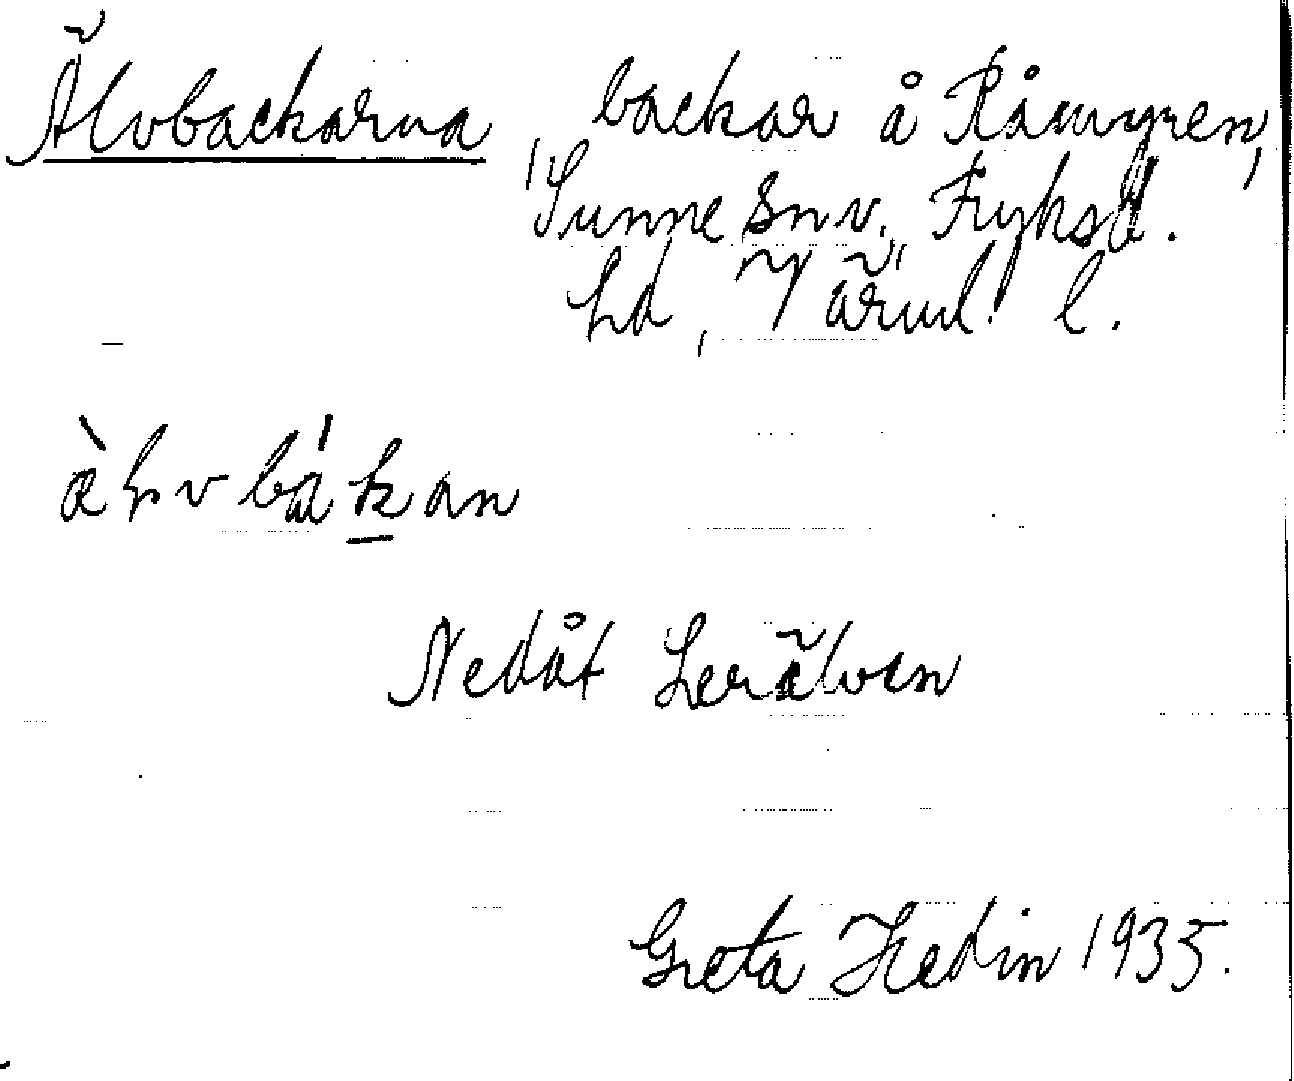 Älvbackarna, backar å Råmyren,
Sunne snv., Fryksd.
hd, Värml. l.
àḷvbákan
Nedåt Lerälven
Greta Hedin 1935.